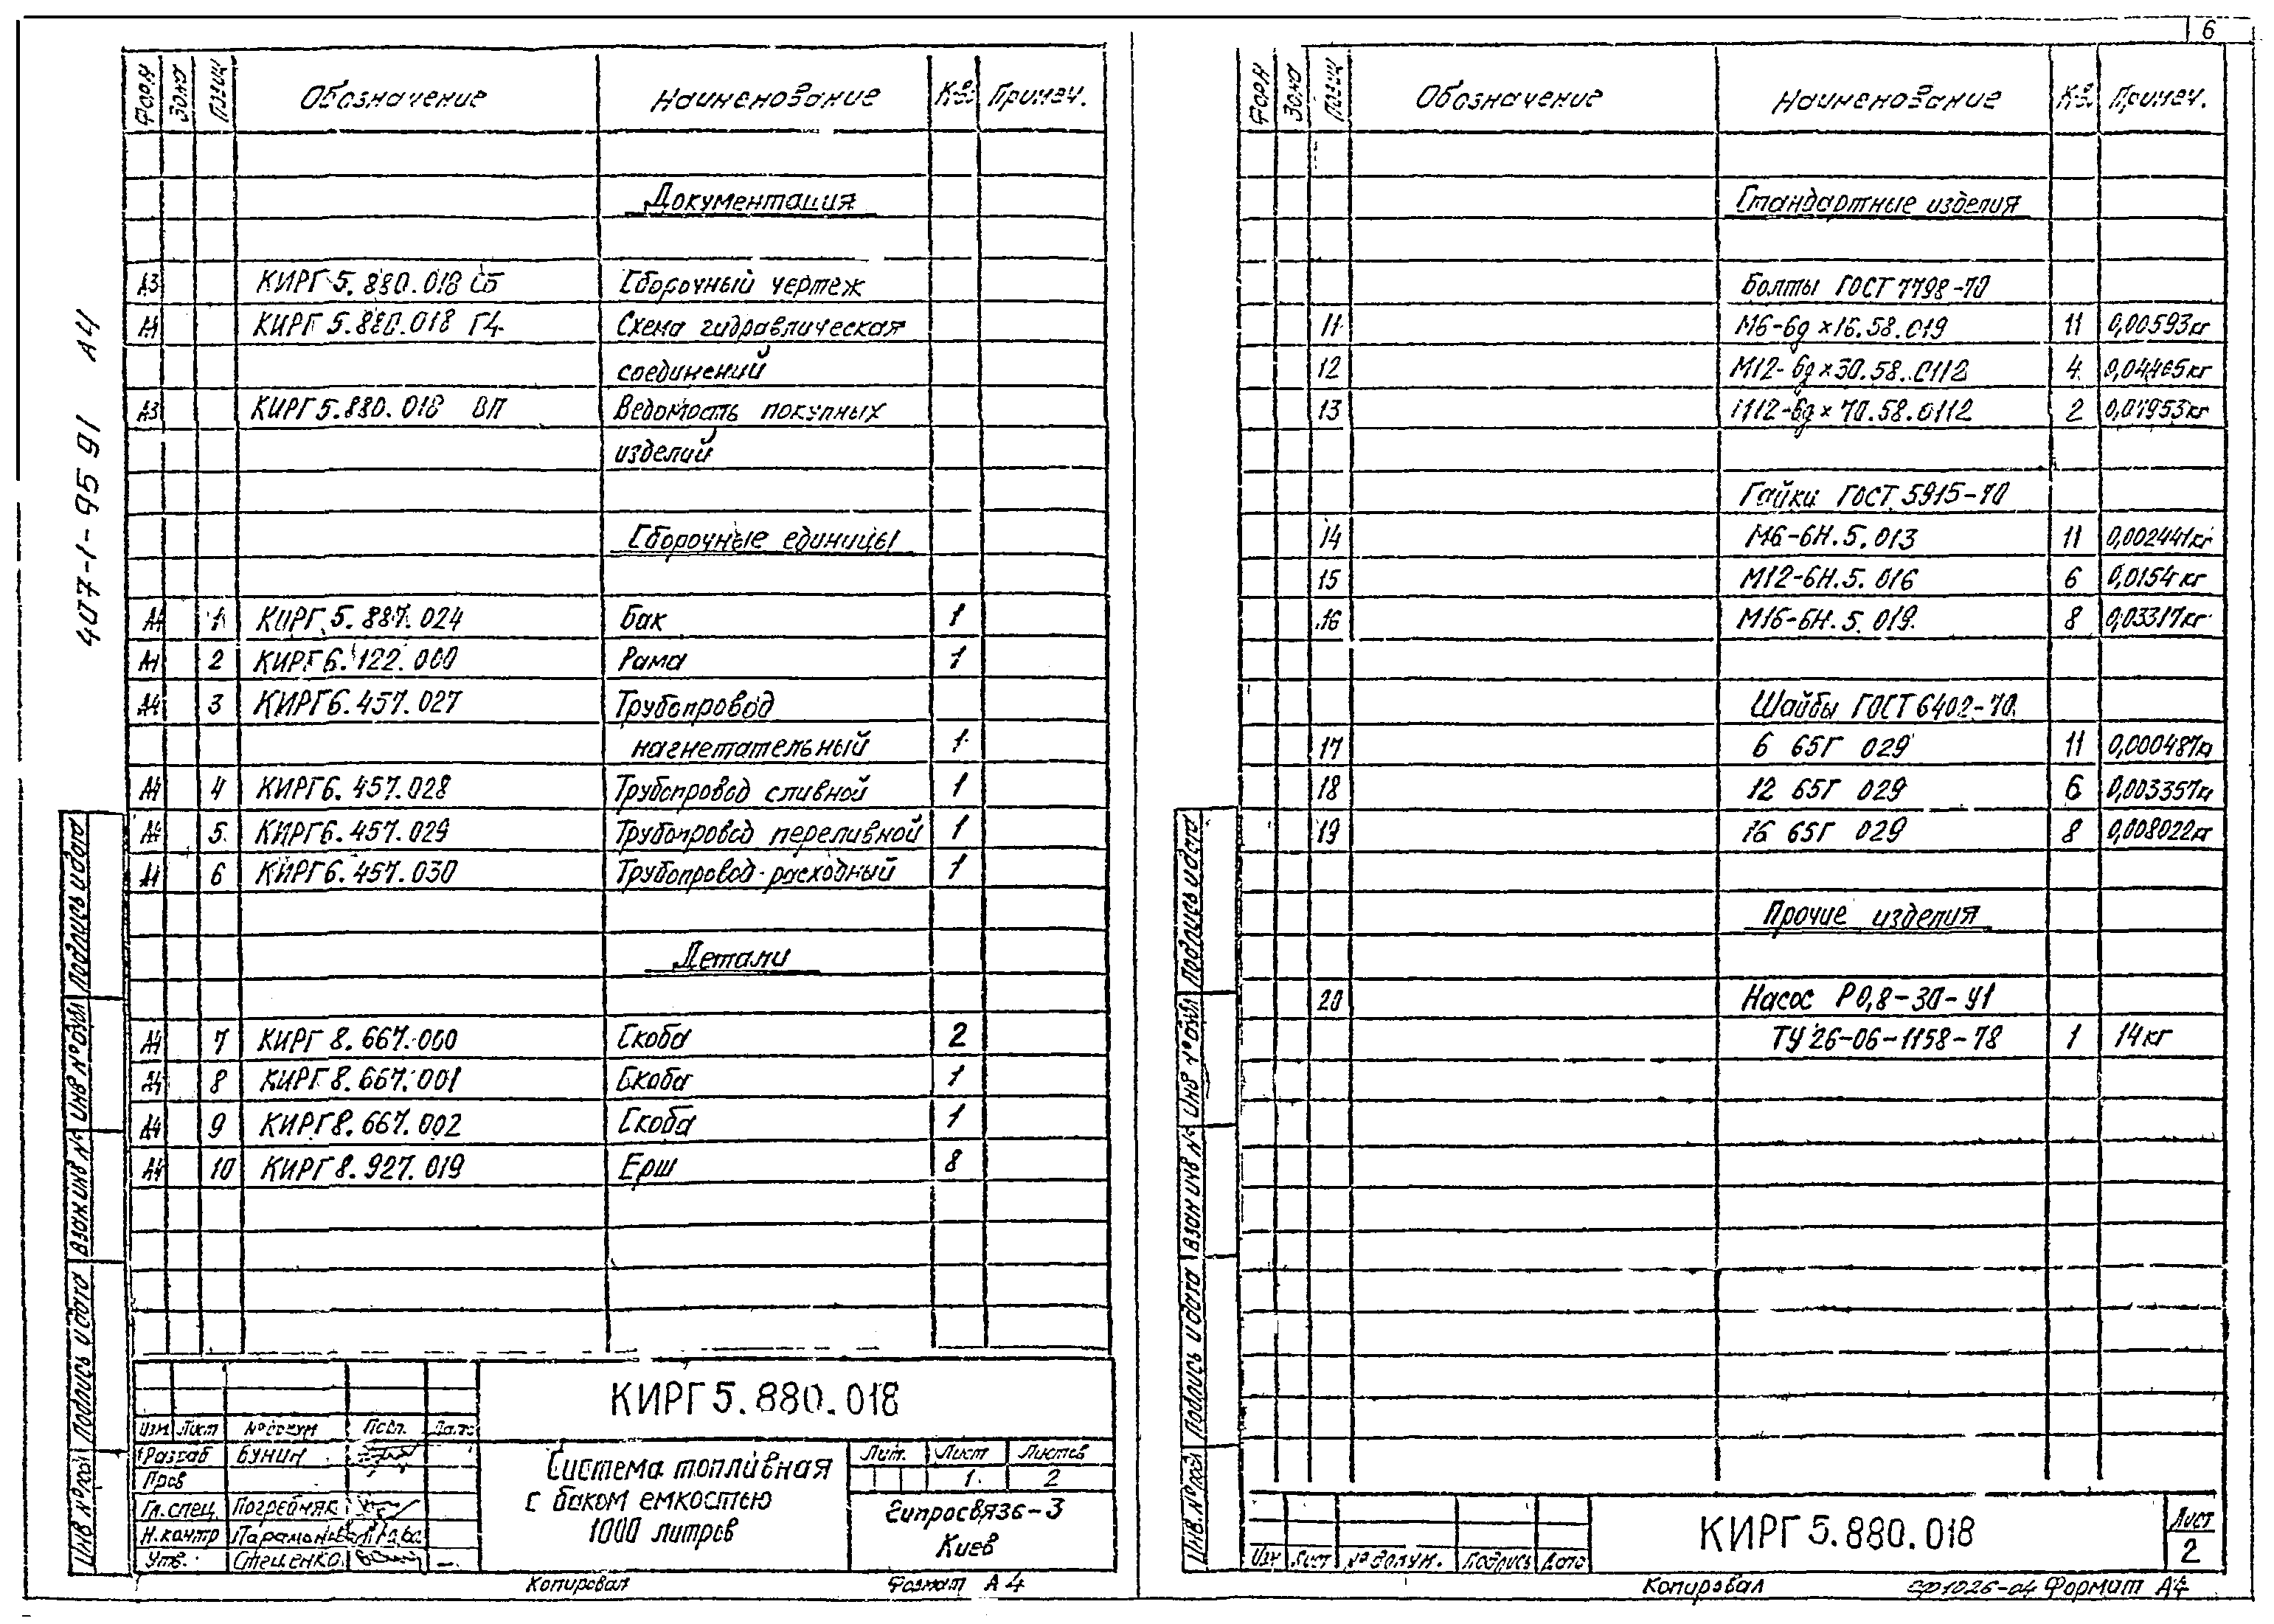 6
407-1-95 91 А4
Форм Зона Позиц Обозначение Наименование К-во Примеч.
Документация
А3 КИРГ 5.880.018 СБ Сборочный чертеж
А4 КИРГ 5.880.018 Г4 Схема гидравлическая
соединений
А3 КИРГ 5.880.018 ВП Ведомость покупных
изделий
Сборочные единицы
А4 1 КИРГ 5.887.024 Бак 1
А4 2 КИРГ 6.122.000 Рама 1
А4 3 КИРГ 6.457.027 Трубопровод
нагнетательный 1
А4 4 КИРГ 6.457.028 Трубопровод сливной 1
А4 5 КИРГ 6.457.029 Трубопровод переливной 1
А4 6 КИРГ 6.457.030 Трубопровод расходный 1
Детали
А4 7 КИРГ 8.667.000 Скоба 2
А4 8 КИРГ 8.667.001 Скоба 1
А4 9 КИРГ 8.667.002 Скоба 1
А4 10 КИРГ 8.927.019 Ерш 8
Инв № подл Подпись и дата Взам инв № Инв № дубл Подпись и дата
КИРГ 5.880.018
Изм Лист № докум Подп. Дата
Разраб Бунин
Пров
Гл. спец. Погребняк
Н. контр
Утв. Стеценко
Система топливная
с баком емкостью
1000 литров
Лит. Лист Листов
1 2
Гипросвязь-3
Киев
Копировал Формат А4
Форм Зона Позиц Обозначение Наименование К-во Примеч.
Стандартные изделия
Болты ГОСТ 7798-70
11 М6-6g×16.58.019 11 0,00593кг
12 М12-6g×30.58.0112 4 0,04465кг
13 М12-6g×70.58.0112 2 0,07953кг
Гайки ГОСТ 5915-70
14 М6-6Н.5.013 11 0,002441кг
15 М12-6Н.5.016 6 0,0154кг
16 М16-6Н.5.019 8 0,03317кг
Шайбы ГОСТ 6402-70
17 6 65Г 029 11 0,000487кг
18 12 65Г 029 6 0,003357кг
19 16 65Г 029 8 0,008022кг
Прочие изделия
20 Насос Р0,8-30-У1
ТУ 26-06-1158-78 1 14кг
Инв. № подл Подпись и дата Взам инв № Инв № дубл Подпись и дата
Изм Лист № докум. Подпись Дата
КИРГ 5.880.018
Лист
2
Копировал сф1026-04 Формат А4